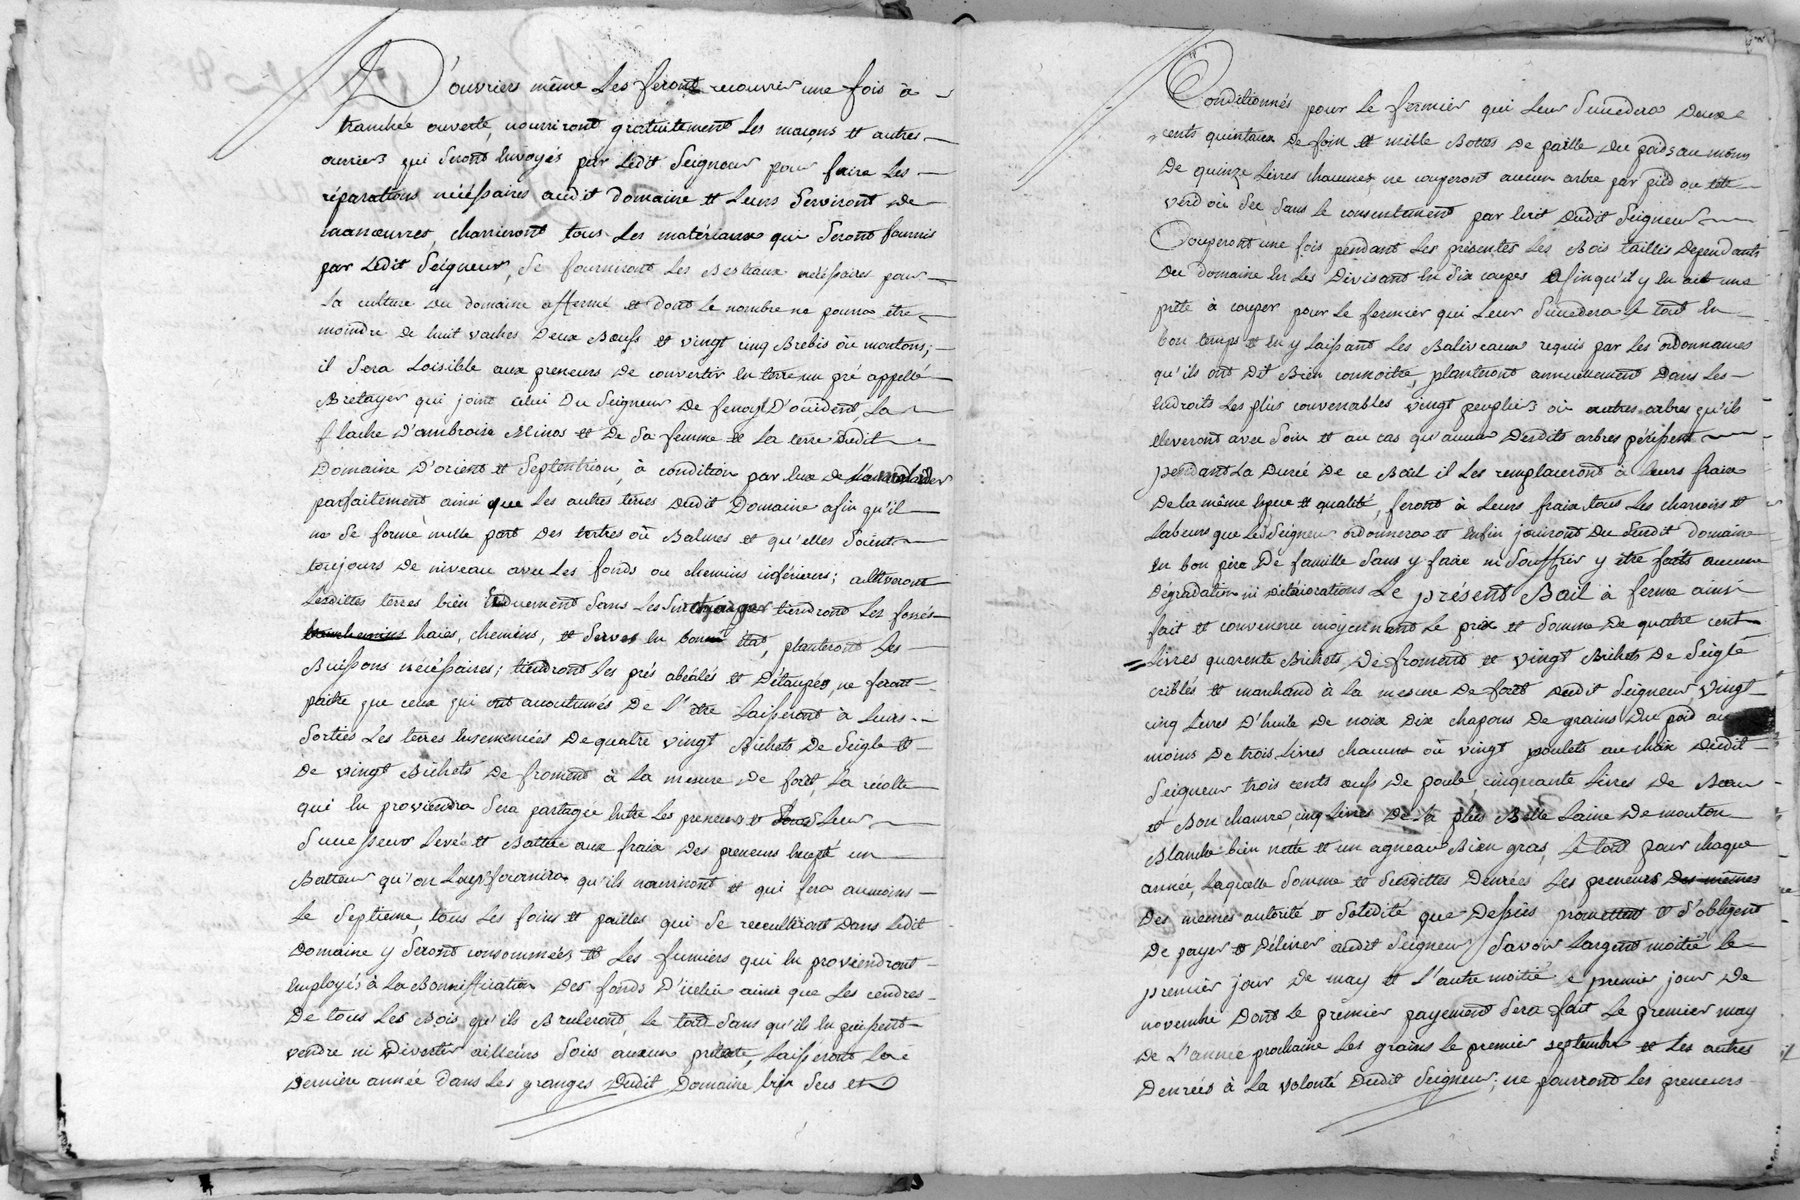 D'ouvriers même Les feront recouvrir une fois à
tranchée ouverte, nourriront gratuitement Les maçons et autres
ouvriers qui Seront Envoyés par Ledit Seigneur pour faire Les
réparations nécéssaires audit domaine et Leurs Serviront De
manœuvres, charrieront tous Les matériaux qui Seront fournis
par Ledit Seigneur, Se fourniront Les Bestiaux nécéssaires pour
La culture du domaine affermé et dont Le nombre ne pourra être
moindre de huit vaches Deux Bœufs et vingt cinq Brebis où moutons;
il Sera Loisible aux preneurs De convertir En terre un pré appellé
Bretayer qui joint Celui Du Seigneur De fenoyl D'occident, La
flache D'ambroise et De Sa femme et La terre Dudit
Domaine D'orient et Septentrion, à condition par Eux De
parfaitement ainsi que Les autres terres Dudit Domaine afin qu'il
ne Se forme nulle part Des tertres où Balmes et qu'elles Soient
toujours De niveau avec Les fonds ou chemins inférieurs; cultiveront
Lesdittes terres bien Et duement Sans Les Surcharger tiendront Les fossés
haies, chemins, et Serves En bon état, planteront Les
Buissons nécéssaires; tiendront Les prés abéalés et Détaupés, ne feront
paitre que ceux qui ont accoutumés De L'être Laisseront à Leurs
Sorties Les terres Ensemencées De quatre vingt Bichets De Seigle et
De vingt Bichets De froment à La mesure De foret, La récolte
qui En proviendra Sera partagée Entre Les preneurs et Leur
Successeur Levée et Battue aux fraix Des preneurs Excepté un
Batteur qu'on Leur fournira qu'ils nourriront et qui Sera aumoins
Le Septieme, tous Les foins et pailles qui Se recueilliront Dans Ledit
Domaine y Seront consommées et Les fumiers qui En proviendront
Employés à La Bonniffication Des fonds D'icelui ainsi que Les cendres
De tous Les Bois qu'ils Bruleront, Le tout Sans qu'ils En puissent
vendre ni Divertir ailleurs Sous aucun prétexte, Laisseront La
Dernière année dans Les granges Dudit Domaine bien Secs et
Conditionnés pour Le fermier qui Leur Succedera Deux
cents quintaux De foin et mille Bottes De paille du poids au moins
De quinze Livres chacunes ne couperont aucun arbre par pied ou tête
verd où Sec Sans Le consentement par Ecrit Dudit Seigneur
Couperont une fois pendant Les présentes Les Bois taillis Dependants
Du Domaine En Les Divisant En Six coupes afin qu'il y En ait une
prête à couper pour Le fermier qui Leur Succedera Le tout En
bon temps et En y Laissant Les Baliveaux requis par Les ordonnances
qu'ils ont Dit Bien connoitre, planteront annuellement Dans Les
Endroits Les plus convenables vingt peupliers où autres arbres qu'ils
Eleveront avec Soin et au cas qu'aucun Desdits arbres périssent
pendant La Durée De ce Bail il Les remplaceront à Leurs fraix
De La même Espece et qualité, feront à Leurs fraix tous Les charrois et
Labeurs que Ledit Seigneur ordonnera et Enfin joüiront Du Susdit domaine
En bon père De famille Sans y faire ni Souffrir y être faits aucune
Dégradation ni Détériorations Le présent Bail à ferme ainsi
fait et convenu moyennant Le prix et Somme De quatre cent
Livres quarente Bichets De froment et vingt Bichets De Seigle
criblés et marchand à La mesure De foret Dudit Seigneur, vingt
cinq Livres D'huile De noix Dix chapons De grains Du poid au
moins De trois Livres chacuns où vingt poulets au choix Dudit
Seigneur trois cents œufs De poule, cinquante Livres De Beau
et Bon chanvre, cinq Livres De La plus Belle Laine De mouton
Blanche bien nette et un agneau Bien gras, Le tout pour chaque
année, Laquelle Somme et Susdittes Denrées Les preneurs Des mêmes
Des memes autorité et Solidité que Dessus promettent et S'obligent
De payer et Délivrer audit Seigneur, Savoir Largent moitié le
premier jour De may et L'autre moitié Le premier jour De
novembre Dont Le prémier payement Sera fait Le premier may
De L'année prochaine Les grains Le premier septembre et Les autres
Denrées à La volonté Dudit Seigneur; ne pourront Les preneurs